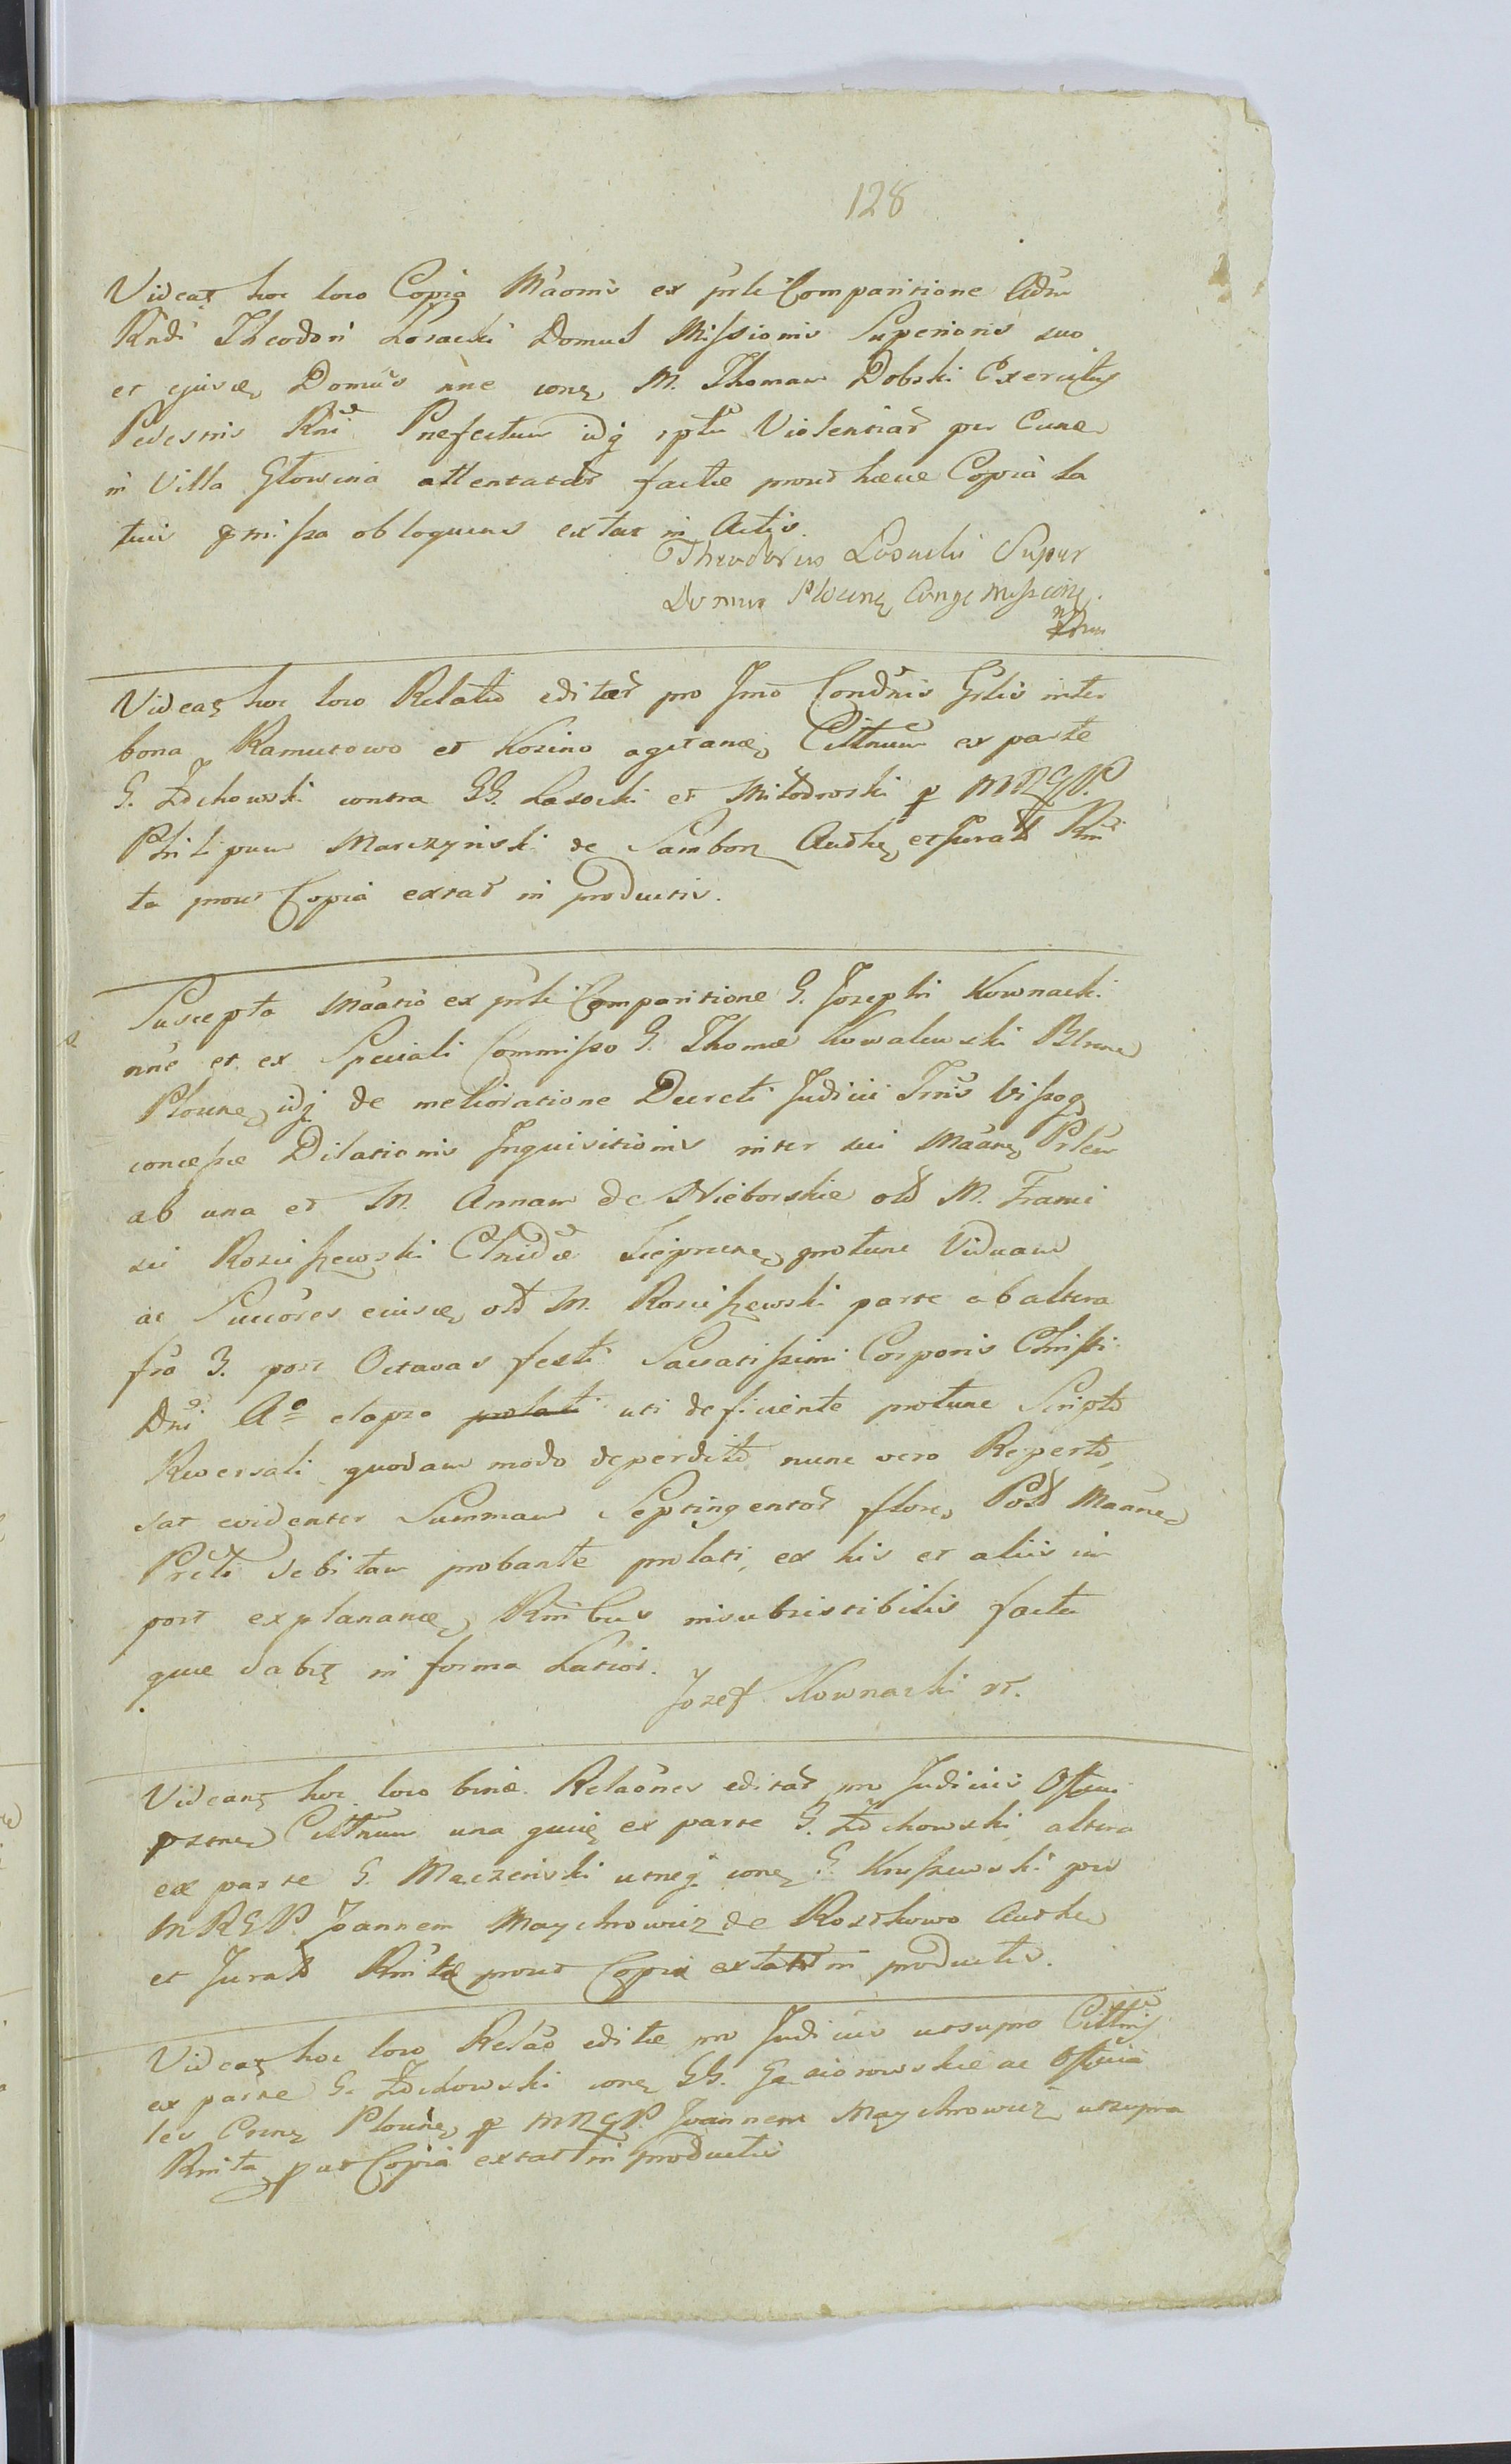 128
Videat hoc loco Copia Māonis ex prli Comparitione Adm
Rndi Theodori Losacki Domus Missionis Superioris suo
et ejusd Domus nne con M. Thomam Dobski Exercitus
Pedestris Rni Prefectum idq Violentiar per Eund
in Villa Glowina attentatar factæ prout hæcce Copia la
tius pmissa obloquens extat in Actis.
Theodorus Losacki Super
Domus Plocen Congr Missionis
Videat hoc loco Relatio editar pro Jmo Condnis Grlis inter
bona Ramutowo et Kozino agitand Cittnum ex parte
G. Zochowski contra GG. Lasocki et Milodroski p MRGP.
Philipum Marczynski de Samborz Authen et Jurat Rmi
ta prout Copia extat in productis.
Suscepta Māatio ex prli Comparitione G. Josephi Kownacki
nne et ex Speciali Commisso G. Thomæ Kowalewski Btrne
Plocen, idq de melioratione Decreti Judicii Trris Wissog
concessæ Dilationis Inquisitionis inter sui Māan Prlem
ab una et M. Annam de Nieborskie old M. Franci
sci Rosciszewski Clnidæ Sieprcen protunc Viduam
ac Succōres eiusd old M. Rosciszewski parte ab altera
fro 3. post Octavas festi Sacratissimi Corporis Christi
Dni Aº elapso prolati uti deficiente protunc Scripto
Reversali quodam modo deperdito nunc vero Reperto,
sat evidenter Summam Septingentor flor Pol Maane
Prcti debitam probante prolati, ex his et aliis im
post explanand Rnibus insubsistibilis facta
quæ dabit in forma Latior.
Jozef Kownacki
Videant hoc loco binæ Relaōnes editar pro Judiciis Offici
Cittnum una quid ex parte G. Zochowski altera
ex parte G. Maczenski utraq con G. Kruszewski per
MRGP Joannem Maychrowicz de Rostkowo Authen
et Jurat Rmitæ prout Copia extat in productis.
Videat hoc loco Relāo editæ pro Judiciis utsupro Cittnis
ex parte G. Zochowski con GG. Gąsiorowskie ac Officia
les Plocen p MRGP. Joannem Maychrowicz utsupra
Rmita put Copia extat in productis